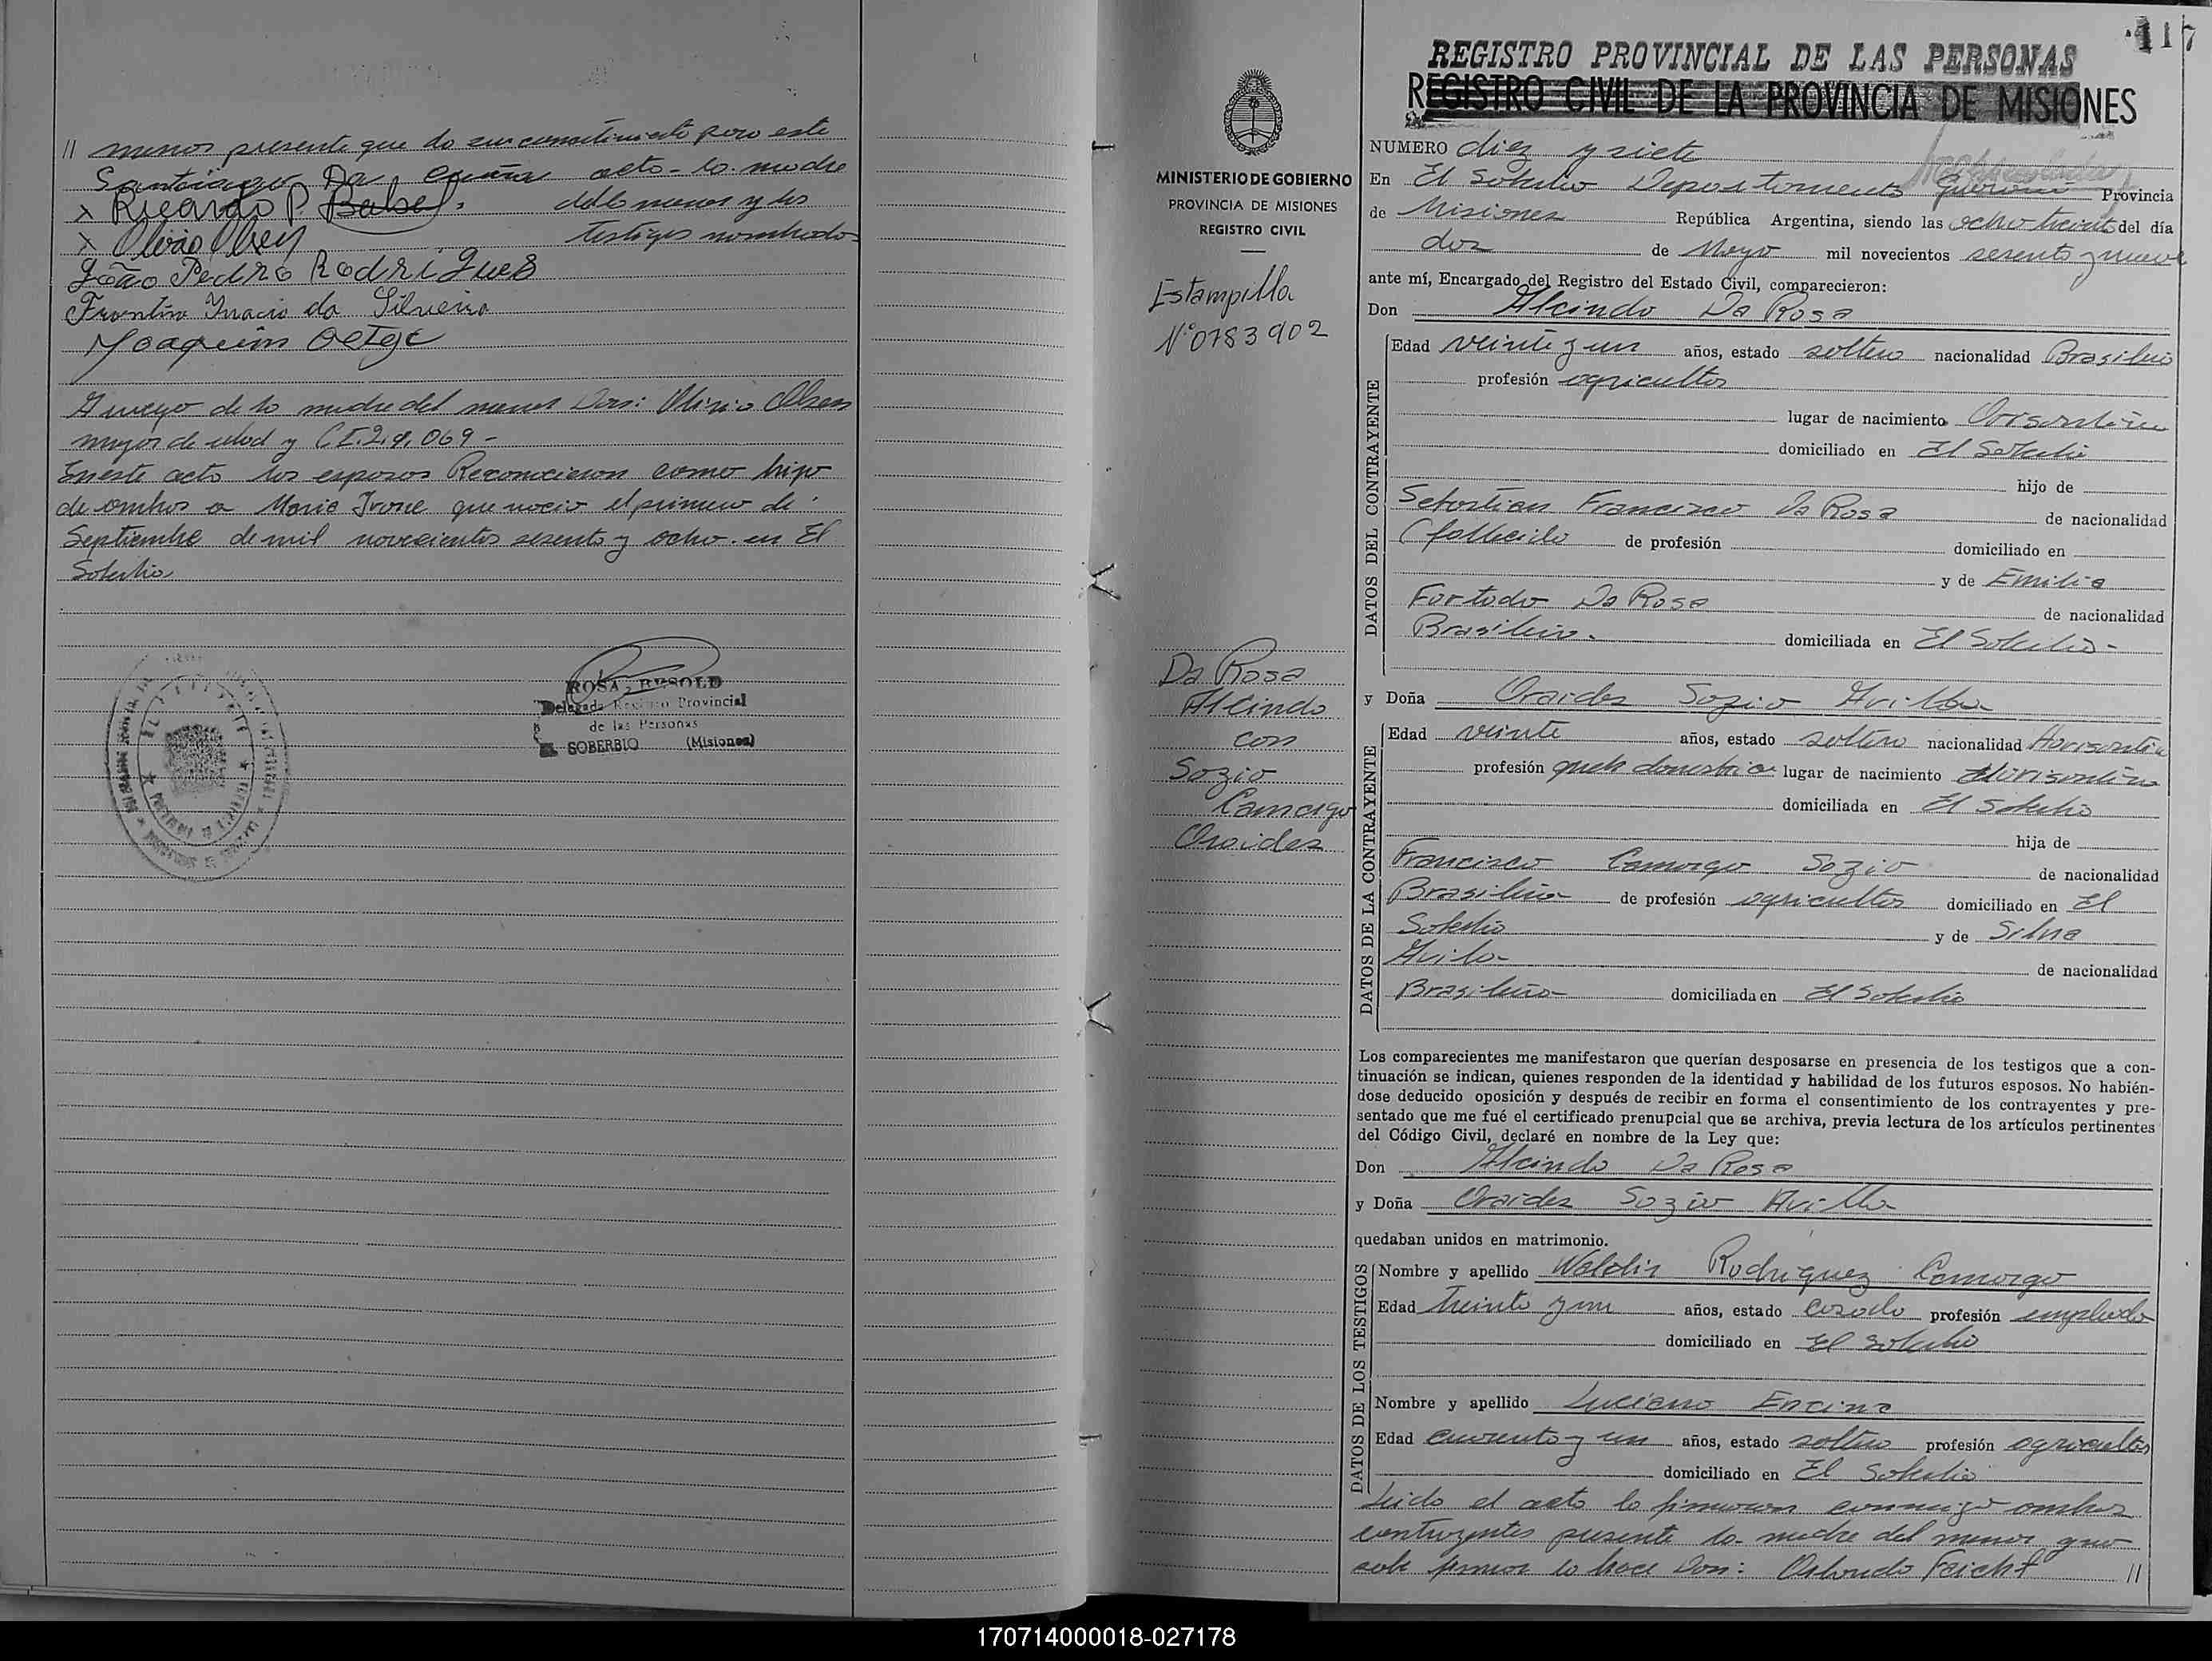 // menor presente que da su consentimiento para este
Santiago Da acto - la madre
x Ricardo P.
del menor y los
x testigos nombrados
João Pedro Rodrigues
Inacio da Silveira
Joaquim
A ruego de la madre del menor Don: Olivio Olsen
mayor de edad y C.I. 069 -
En este acto los esposos Reconocieron como hijo
de ambos a Maria Ivone que nacio el primero de
Septiembre de mil novecientos sesenta y ocho. en El
Soberbio
ROSA BESOLD
Delegada Registro Provincial
de las Personas
SOBERBIO (Misiones)
117
REGISTRO PROVINCIAL DE LAS PERSONAS
REGISTRO CIVIL DE LA PROVINCIA DE MISIONES
MINISTERIO DE GOBIERNO
PROVINCIA DE MISIONES
REGISTRO CIVIL
Estampilla
Nº 0783902
Da Rosa
Alcindo
con
Sozio
Camargo
Oraides
NUMERO diez y siete
En El Soberbio Departamento Guarani Provincia
de Misiones República Argentina, siendo las ocho treinta del día
dos de Mayo mil novecientos sesenta y nueve
ante mí, Encargado del Registro del Estado Civil, comparecieron:
Don Alcindo Da Rosa
DATOS DEL CONTRAYENTE
Edad veinte y un años, estado soltero nacionalidad Brasileño
profesión agricultor
lugar de nacimiento
domiciliado en El Soberbio
hijo de
Sebastian Francisco Da Rosa de nacionalidad
(fallecido de profesión domiciliado en
y de Emilia
Fortado Da Rosa de nacionalidad
Brasileira. domiciliada en El Soberbio -
y Doña Oraides Sozio Avilla
DATOS DE LA CONTRAYENTE
Edad veinte años, estado soltera nacionalidad
profesión queh domestico lugar de nacimiento
domiciliada en El Soberbio
hija de
Francisco Camargo Sozio de nacionalidad
Brasileño de profesión agricultor domiciliado en El
Soberbio y de Silna
Avila de nacionalidad
Brasileña domiciliada en El Soberbio
Los comparecientes me manifestaron que querían desposarse en presencia de los testigos que a con-
tinuación se indican, quienes responden de la identidad y habilidad de los futuros esposos. No habién-
dose deducido oposición y después de recibir en forma el consentimiento de los contrayentes y pre-
sentado que me fué el certificado prenupcial que se archiva, previa lectura de los artículos pertinentes
del Código Civil, declaré en nombre de la Ley que:
Don Alcindo Da Rosa
y Doña Oraides Sozio Avilla
quedaban unidos en matrimonio.
DATOS DE LOS TESTIGOS
Nombre y apellido Waldir Rodriguez Camargo
Edad treinta y un años, estado casado profesión empleado
domiciliado en El Soberbio
Nombre y apellido Luciano Encina
Edad cuarenta y un años, estado soltero profesión agricultor
domiciliado en El Soberbio
Leida el acta la firmaron conmigo ambos
contrayentes presente la madre del menor que
no sabe firmar lo hace Don: Orlando Feicht //
170714000018-027178